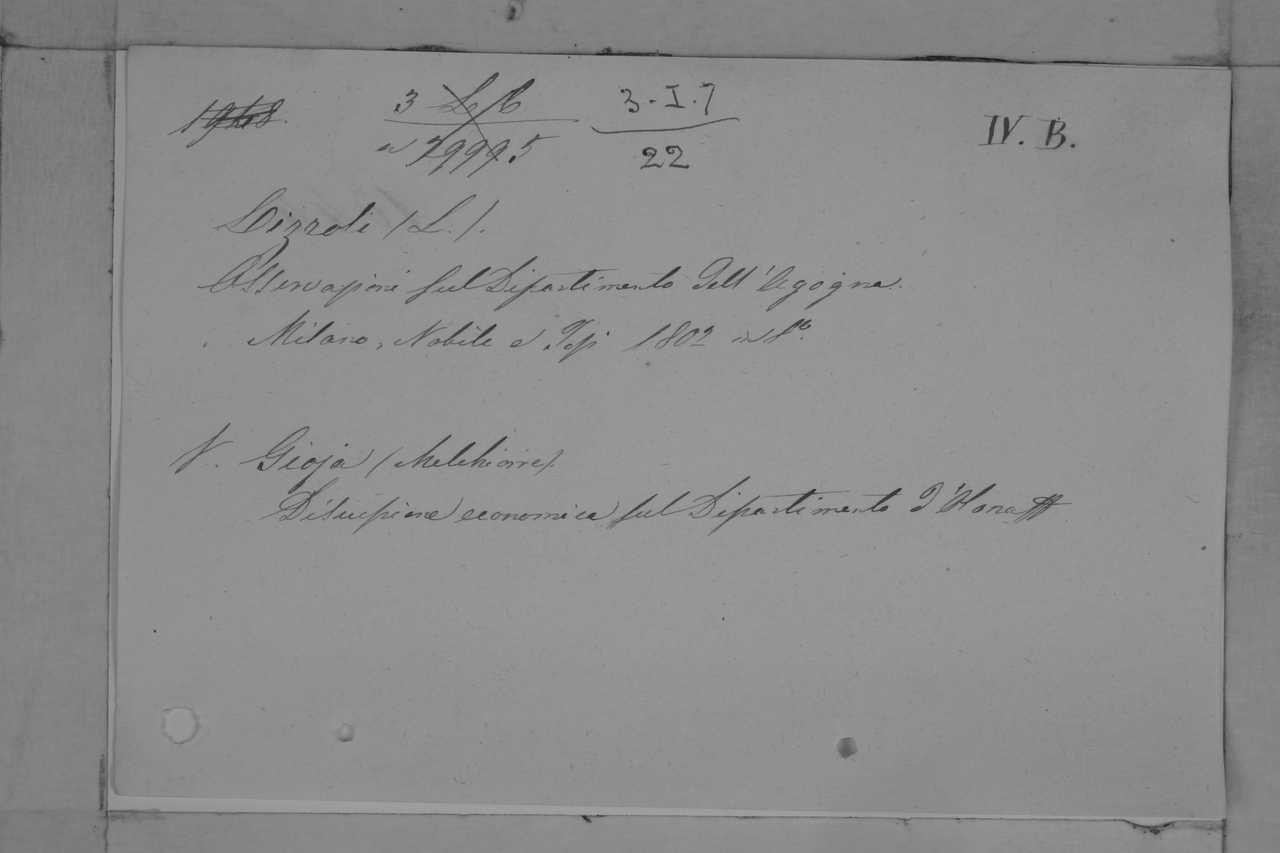 1948.
3 L C
n 7999.5
3-I.7
22
IV. B.
Lizzoli (L.).
Osservazioni sul Dipartimento dell'Agogna.
Milano, Nobile e Tosi 1802 in 8º.
V. Gioja (Melchiorre).
Discussione economica sul Dipartimento d'Olona